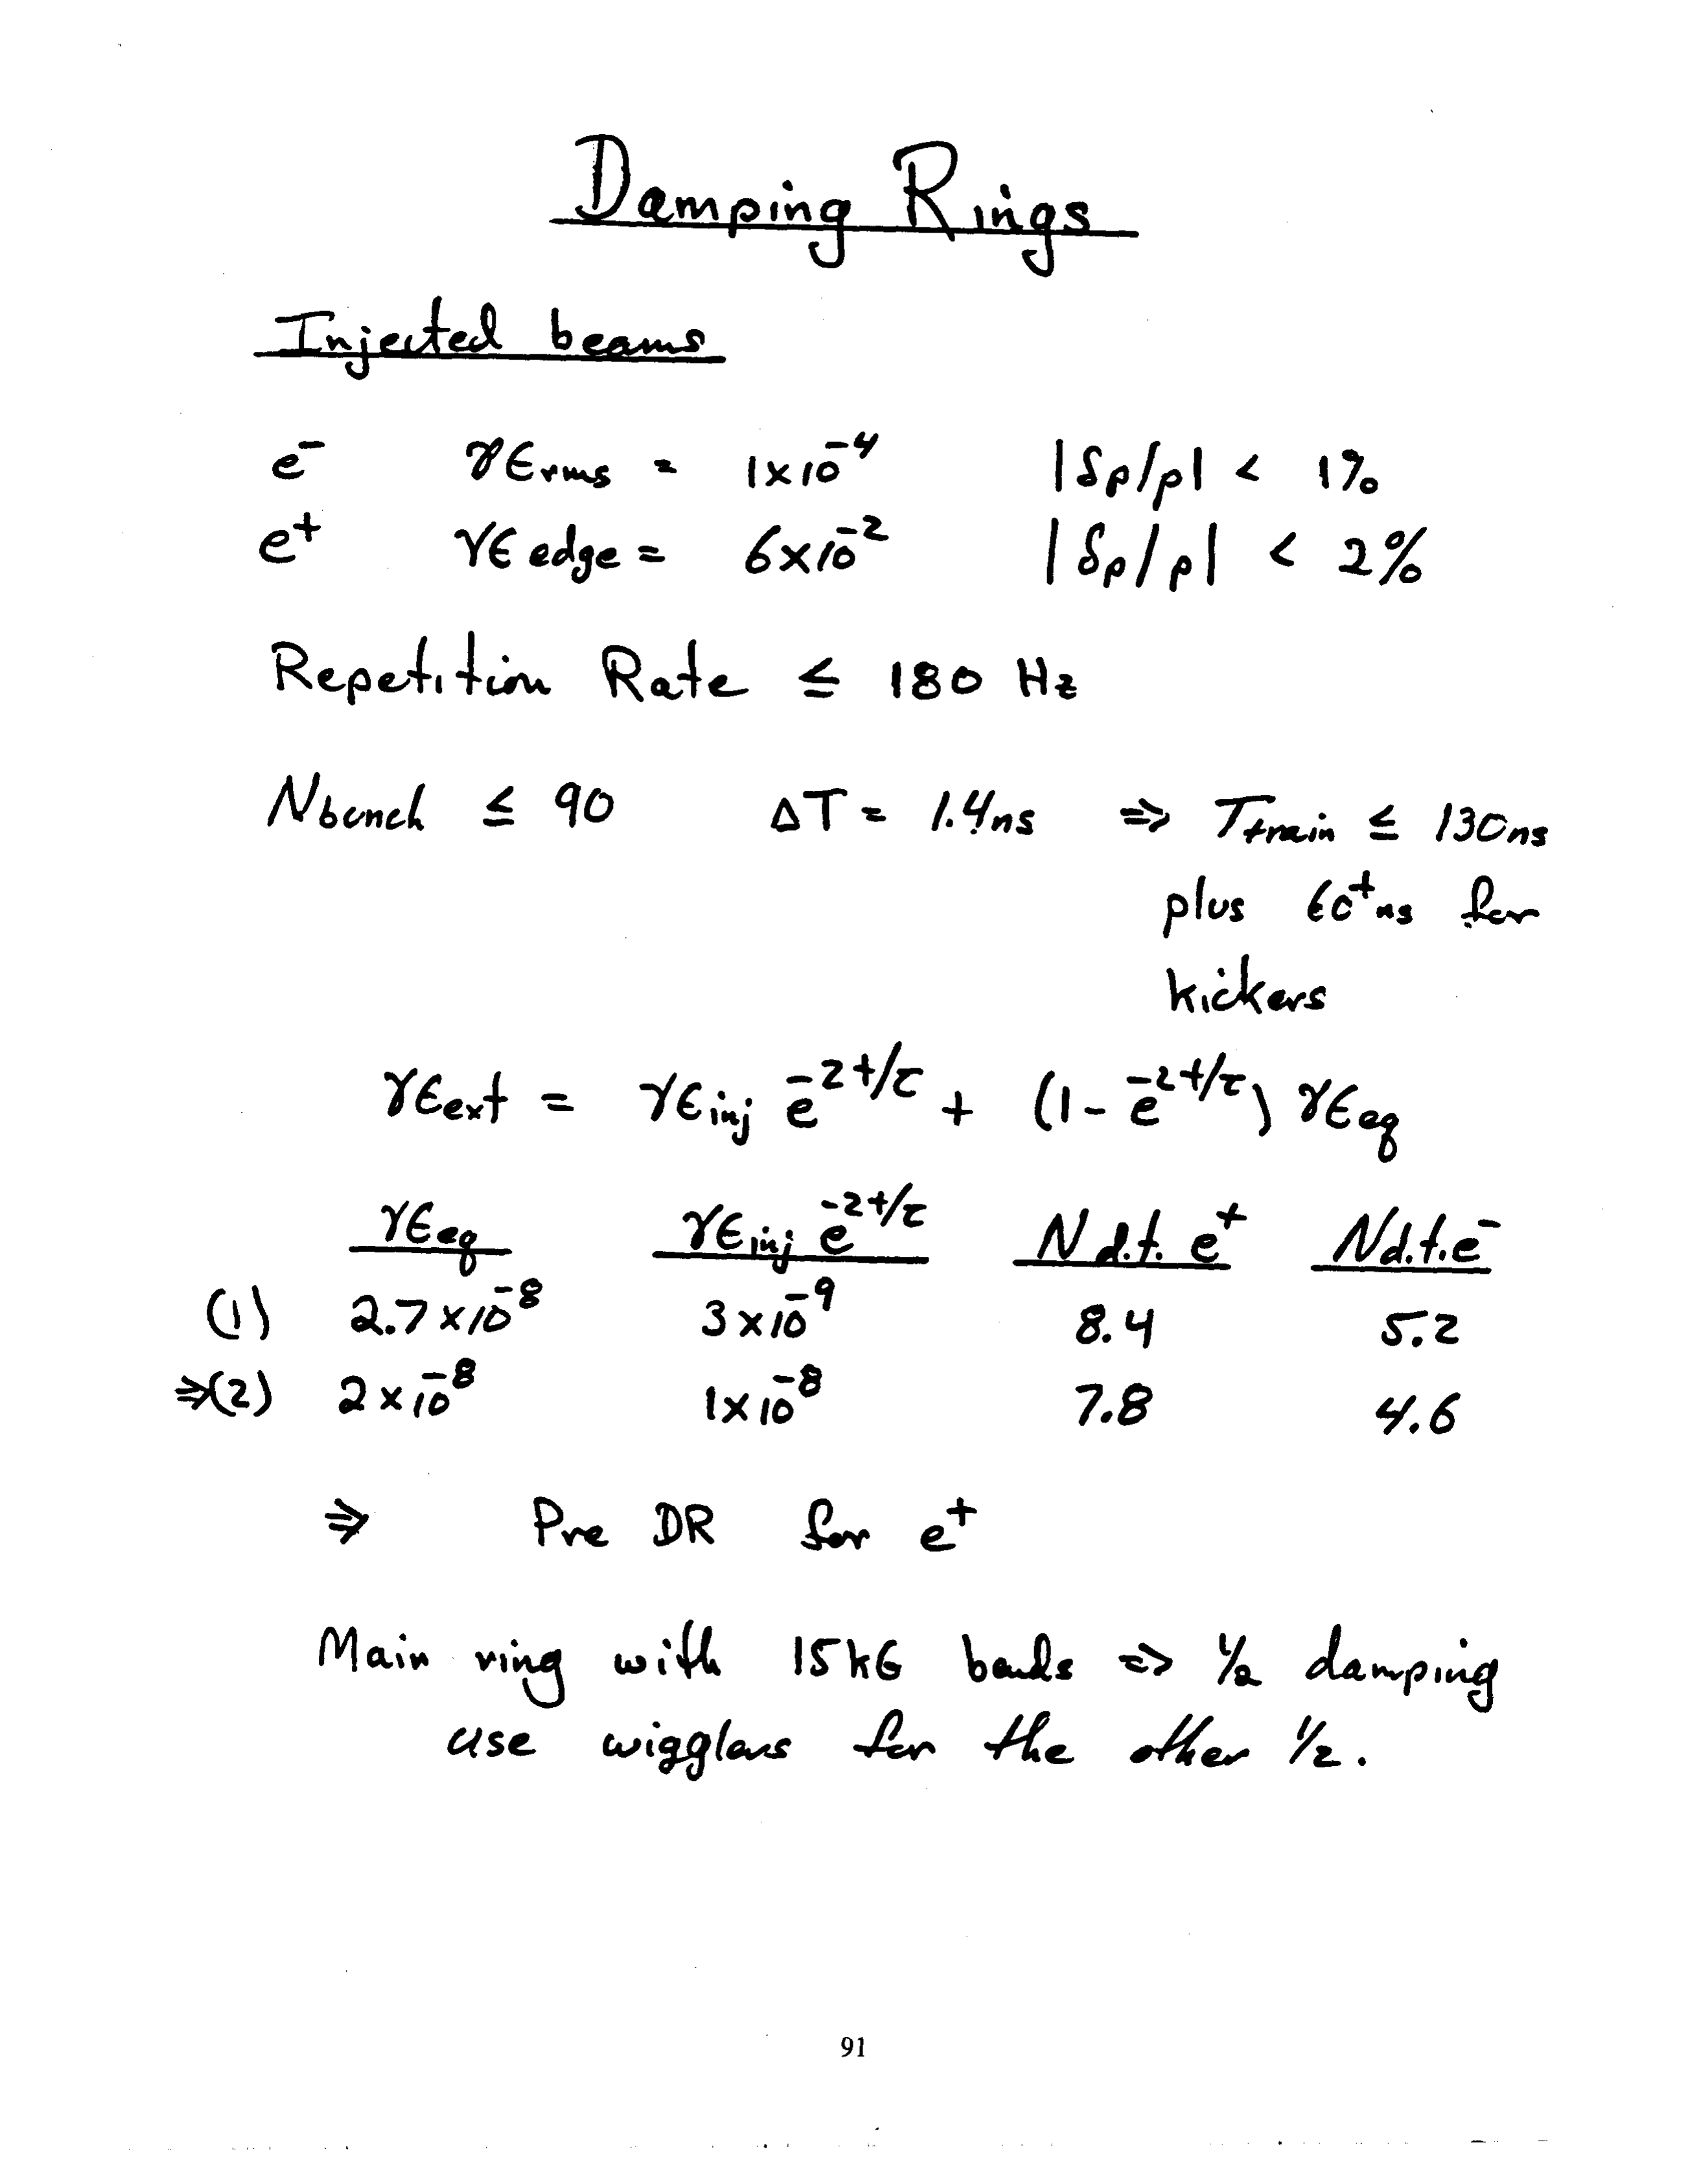 Damping Rings
Injected beams
e⁻ γε rms = 1×10⁻⁴ |δp/p| < 1%
e⁺ γε edge = 6×10⁻² |δp/p| < 2%
Repetition Rate ≤ 180 Hz
Nbunch ≤ 90 ΔT = 1.4ns ⇒ Ttrain ≤ 130ns
plus 60⁺ns for
kickers
γεext = γεinj e^(-2t/τ) + (1 - e^(-2t/τ)) γεeq
γεeq γεinj e^(-2t/τ) N d.t. e⁺ N d.t. e⁻
(1) 2.7×10⁻⁸ 3×10⁻⁹ 8.4 5.2
⇒(2) 2×10⁻⁸ 1×10⁻⁸ 7.8 4.6
⇒ Pre DR for e⁺
Main ring with 15kG bends ⇒ 1/2 damping
use wigglers for the other 1/2.
91